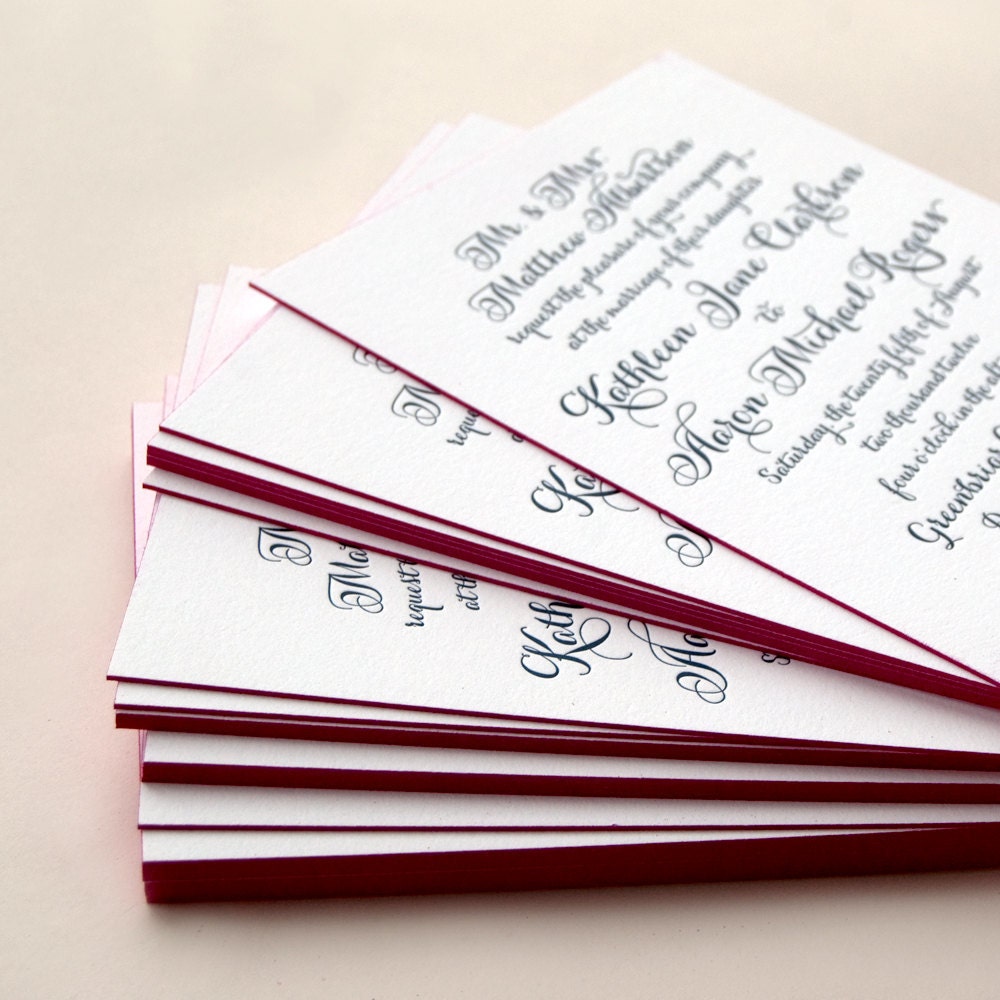 Mr. & Mrs
Matthew Albertson
request the pleasure of your company
at the marriage of their daughter
Kathleen Jane Clarkson
to
Aaron Michael Rogers
Saturday, the twenty fifth of August
two thousand twelve
four o'clock in the
Greenbriar
M
request
Ka
A
Mat
request
at th
Kath
Aa
S